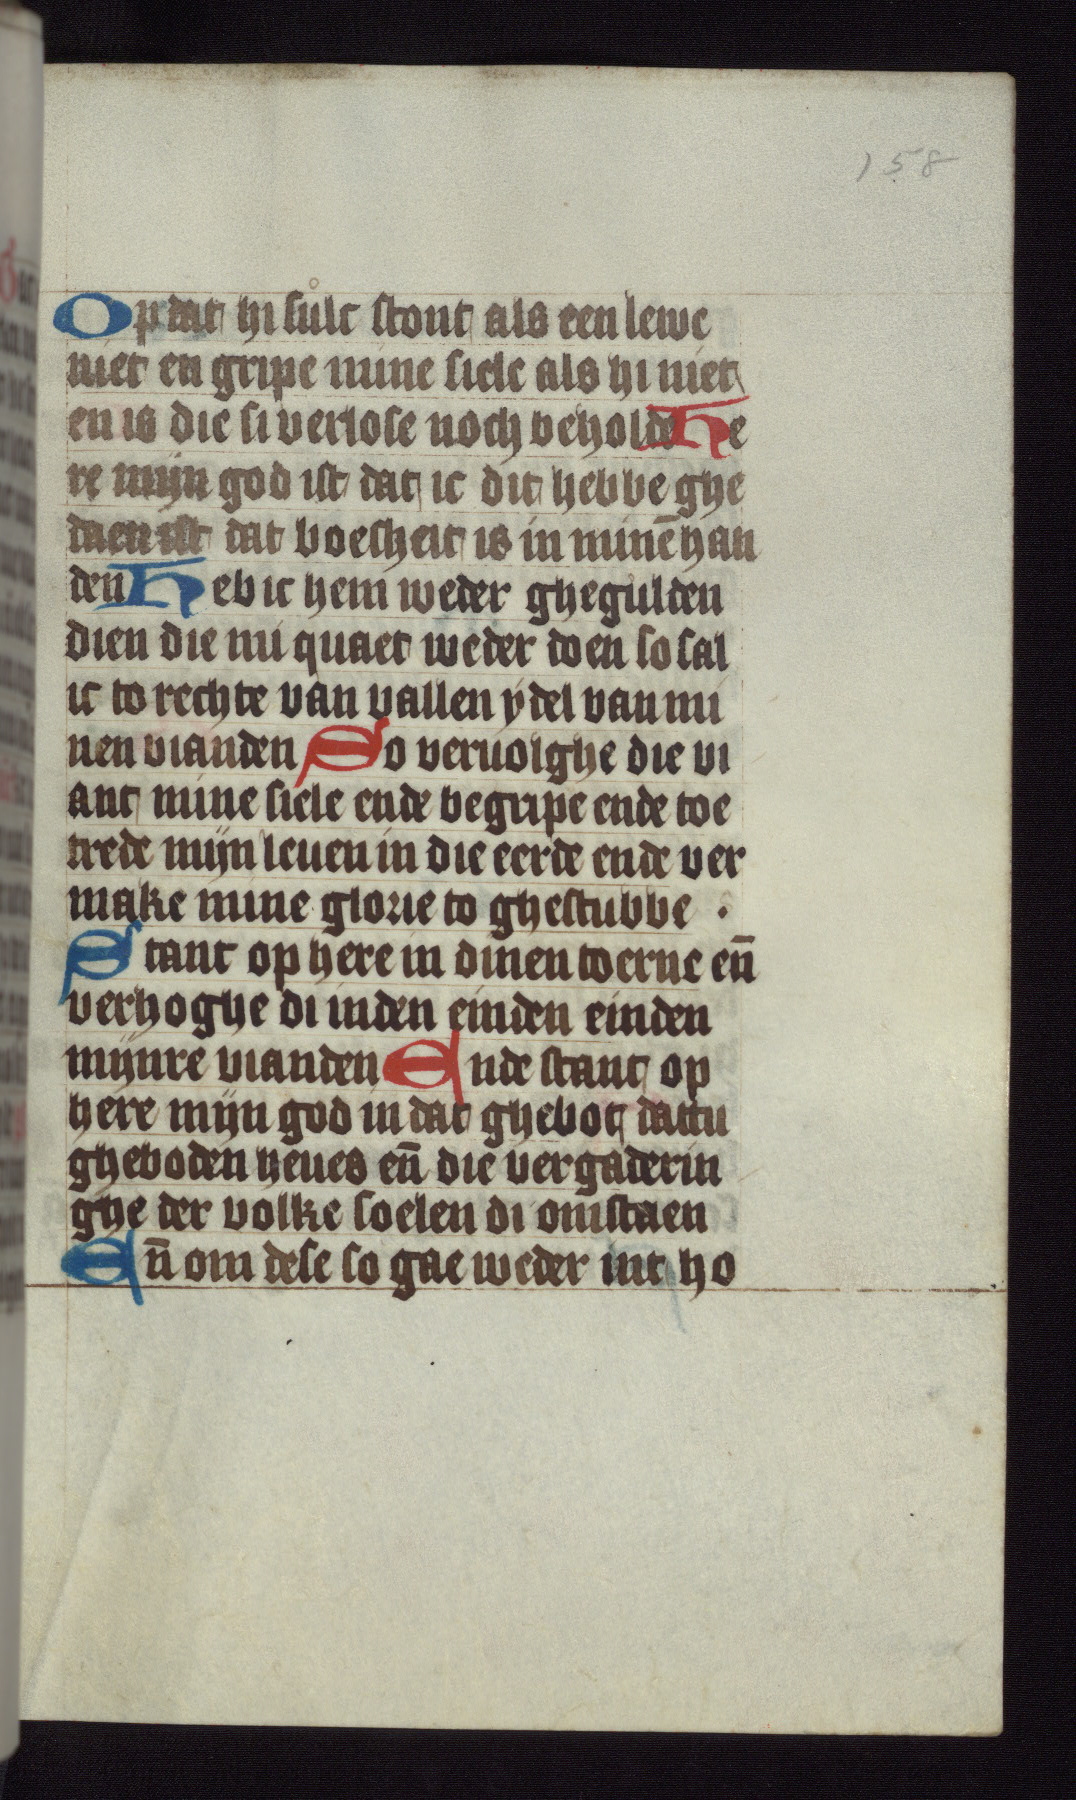 158
Op dat hi sulc stont als een lewe
niet en gripe mine siele als hi niet
en is die si verlose noch beholde He
re mijn god ist dat ic dit hebbe ghe
daen ist dat boesheit is in minē han
den Heb ic hem weder ghegulden
dien die mi quaet weder doen so sal
ic to rechte van vallen ydel van mi
nen vianden So vervolghe die vi
ant mine siele ende begripe ende toe
trede mijn leuen in die eerde ende ver
make mine glorie to ghestubbe .
Stant op here in dinen toerne en̄
verhoghe di inden einden einden
mijnre vianden Ende stant op
here mijn god in dat ghebot dattu
gheboden heues en̄ die vergaderin
ghe der volke soelen di omstaen
En̄ om dese so gae weder int ho